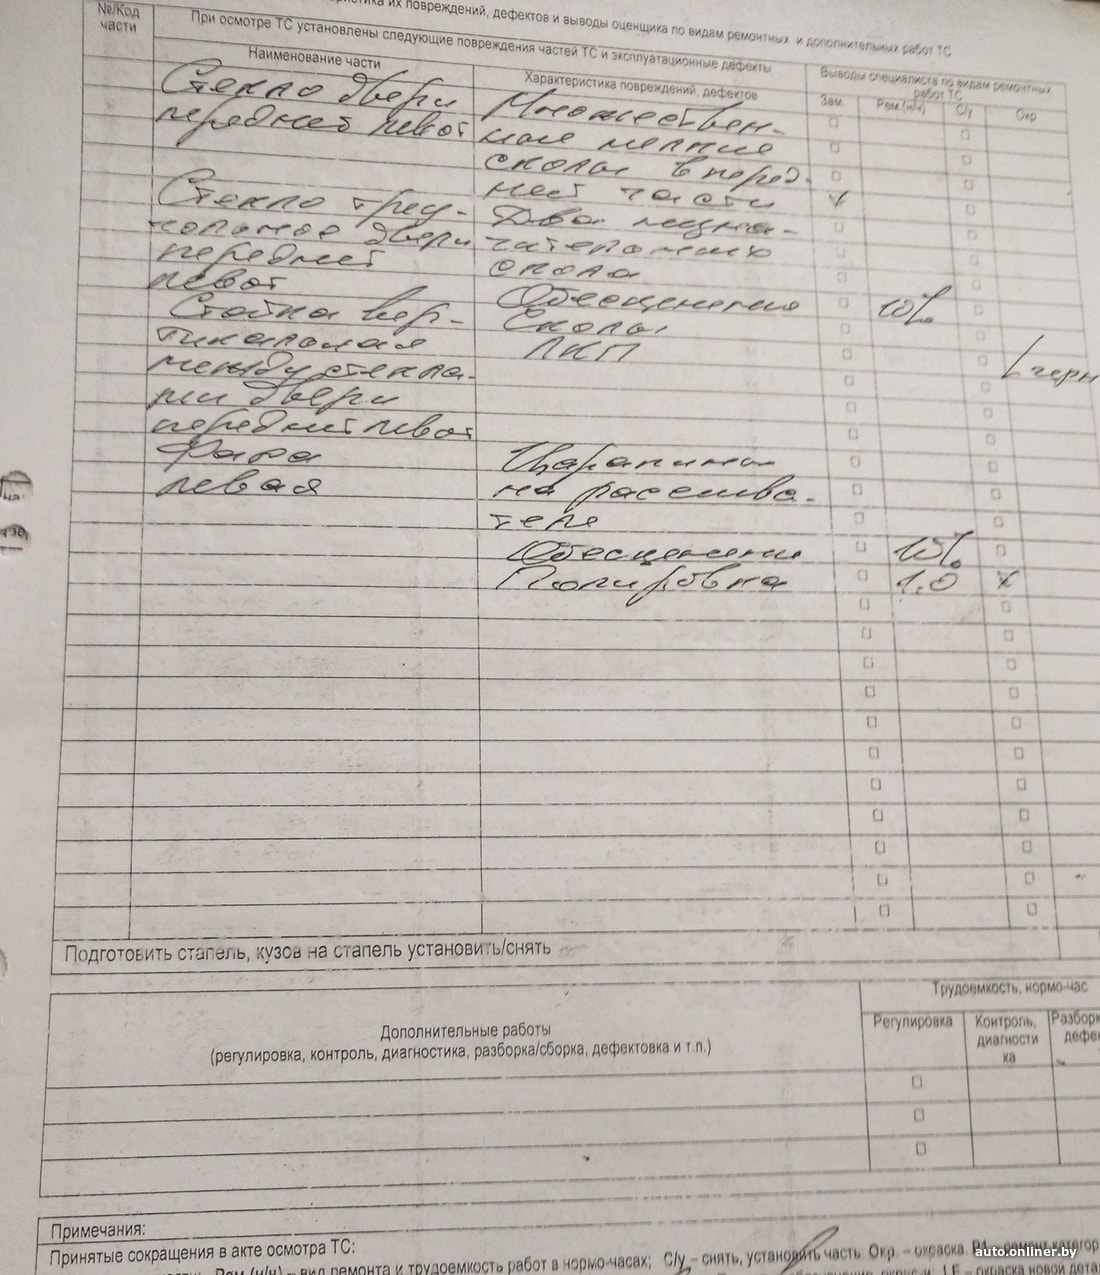 ристика их повреждений, дефектов и выводы оценщика по видам ремонтных и дополнительных работ ТС
№/Код части
При осмотре ТС установлены следующие повреждения частей ТС и эксплуатационные дефекты
Выводы специалиста по видам ремонтных работ ТС
Наименование части
Характеристика повреждений, дефектов
Зам.
Рем.(н/ч)
С/у
Окр
Стекло двери Множествен-
передней левой ные мелкие
сколы в перед-
ней части
Стекло треу- Два незна-
гольное двери чительных
передней скола
левой Обесценение 10%
Стойка вер- Сколы
тикальная ЛКП черн
между стекла-
ми двери
передней левой
Фара Царапины
левая на рассеива-
теле
Обесценение 10%
Полировка 1,0
Подготовить стапель, кузов на стапель установить/снять
Дополнительные работы
(регулировка, контроль, диагностика, разборка/сборка, дефектовка и т.п.)
Трудоемкость, нормо-час
Регулировка
Контроль, диагности ка
Разборк дефек
Примечания:
Принятые сокращения в акте осмотра ТС:
Рем.(н/ч) – вид ремонта и трудоемкость работ в нормо-часах; С/у – снять, установить часть. Окр. – окраска.
окраска новой дета
auto.onliner.by